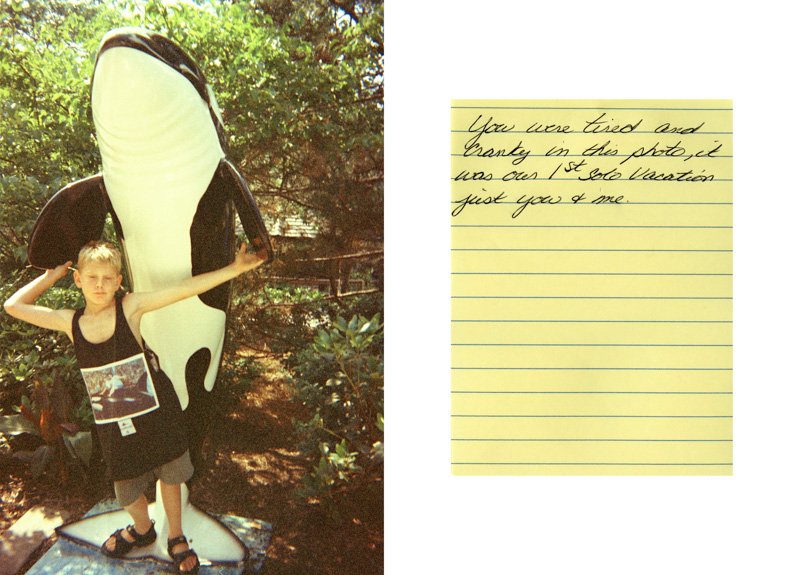 You were tired and
Cranky in this photo, it
was our 1st Solo Vacation
just you & me.